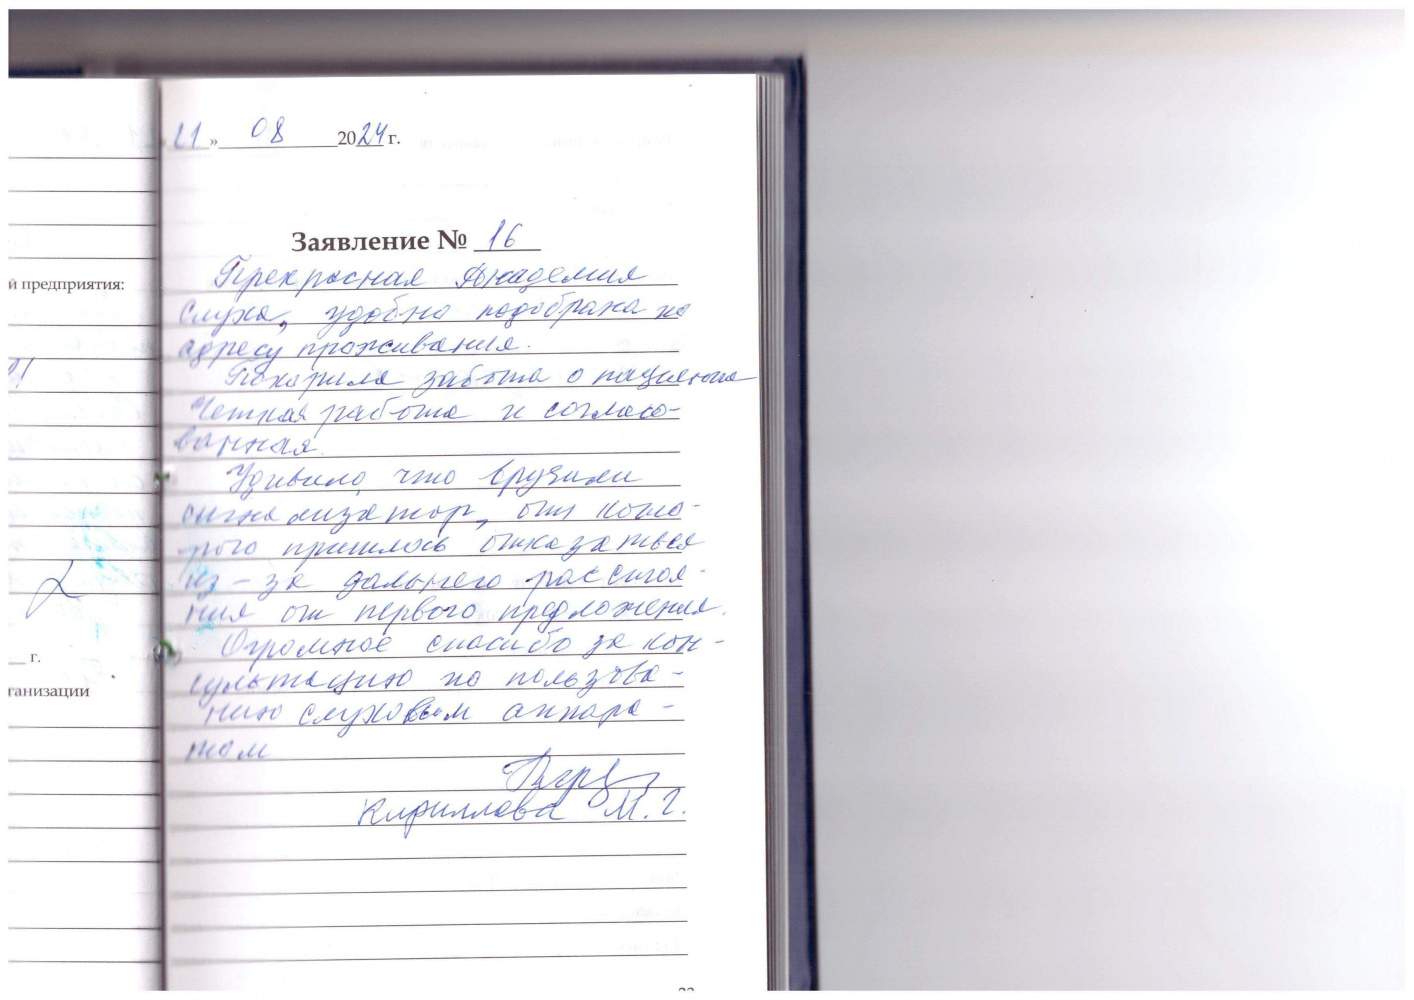 й предприятия:
г.
ганизации
«21» 08 2024 г.
Заявление № 16
Прекрасная Академия
слуха, удобно подобрана по
адресу проживания.
Покорила забота о пациенте
Четкая работа и согласо-
ванная.
Удивило, что вручили
сигнализатор, от кото-
рого пришлось отказаться
из-за дальнего расстоя-
ния от первого предложения.
Огромное спасибо за кон-
сультацию по пользова-
нию слуховым аппара-
том
Кириллова М. Г.